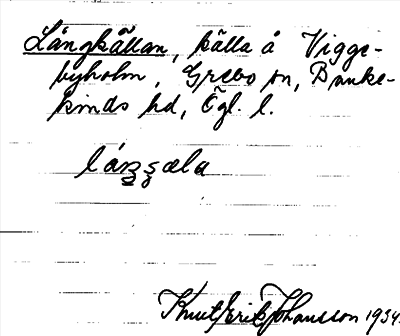 Långkällan, källa å Vigge-
byholm, Grebo sn, Banke-
kinds hd, Ögl. l.
Knut Erik Johansson 1934.